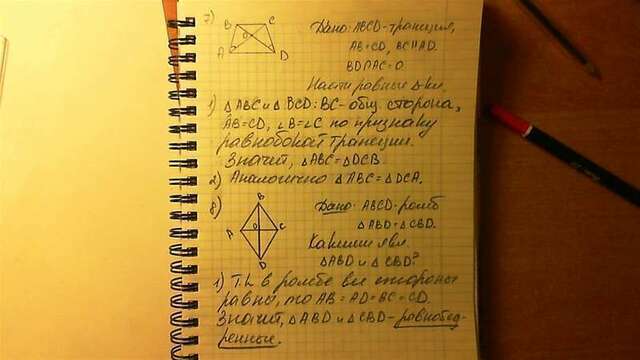 7)
B C
O
A D
Дано: ABCD-трапеция,
AB=CD, BC∥AD.
BD∩AC=O.
Найти равные Δ-ки.
1) ΔABC и ΔBCD: BC-общ. сторона,
AB=CD, ∠B=∠C по признаку
равнобокой трапеции.
Значит, ΔABC=ΔDCB.
2) Аналогично ΔABC=ΔDCA.
8)
B
A O C
D
Дано: ABCD-ромб
ΔABD=ΔCBD.
Какими явл.
ΔABD и ΔCBD?
1) Т.к. в ромбе все стороны
равны, то AB=AD=BC=CD.
Значит, ΔABD и ΔCBD-равнобед-
ренные.